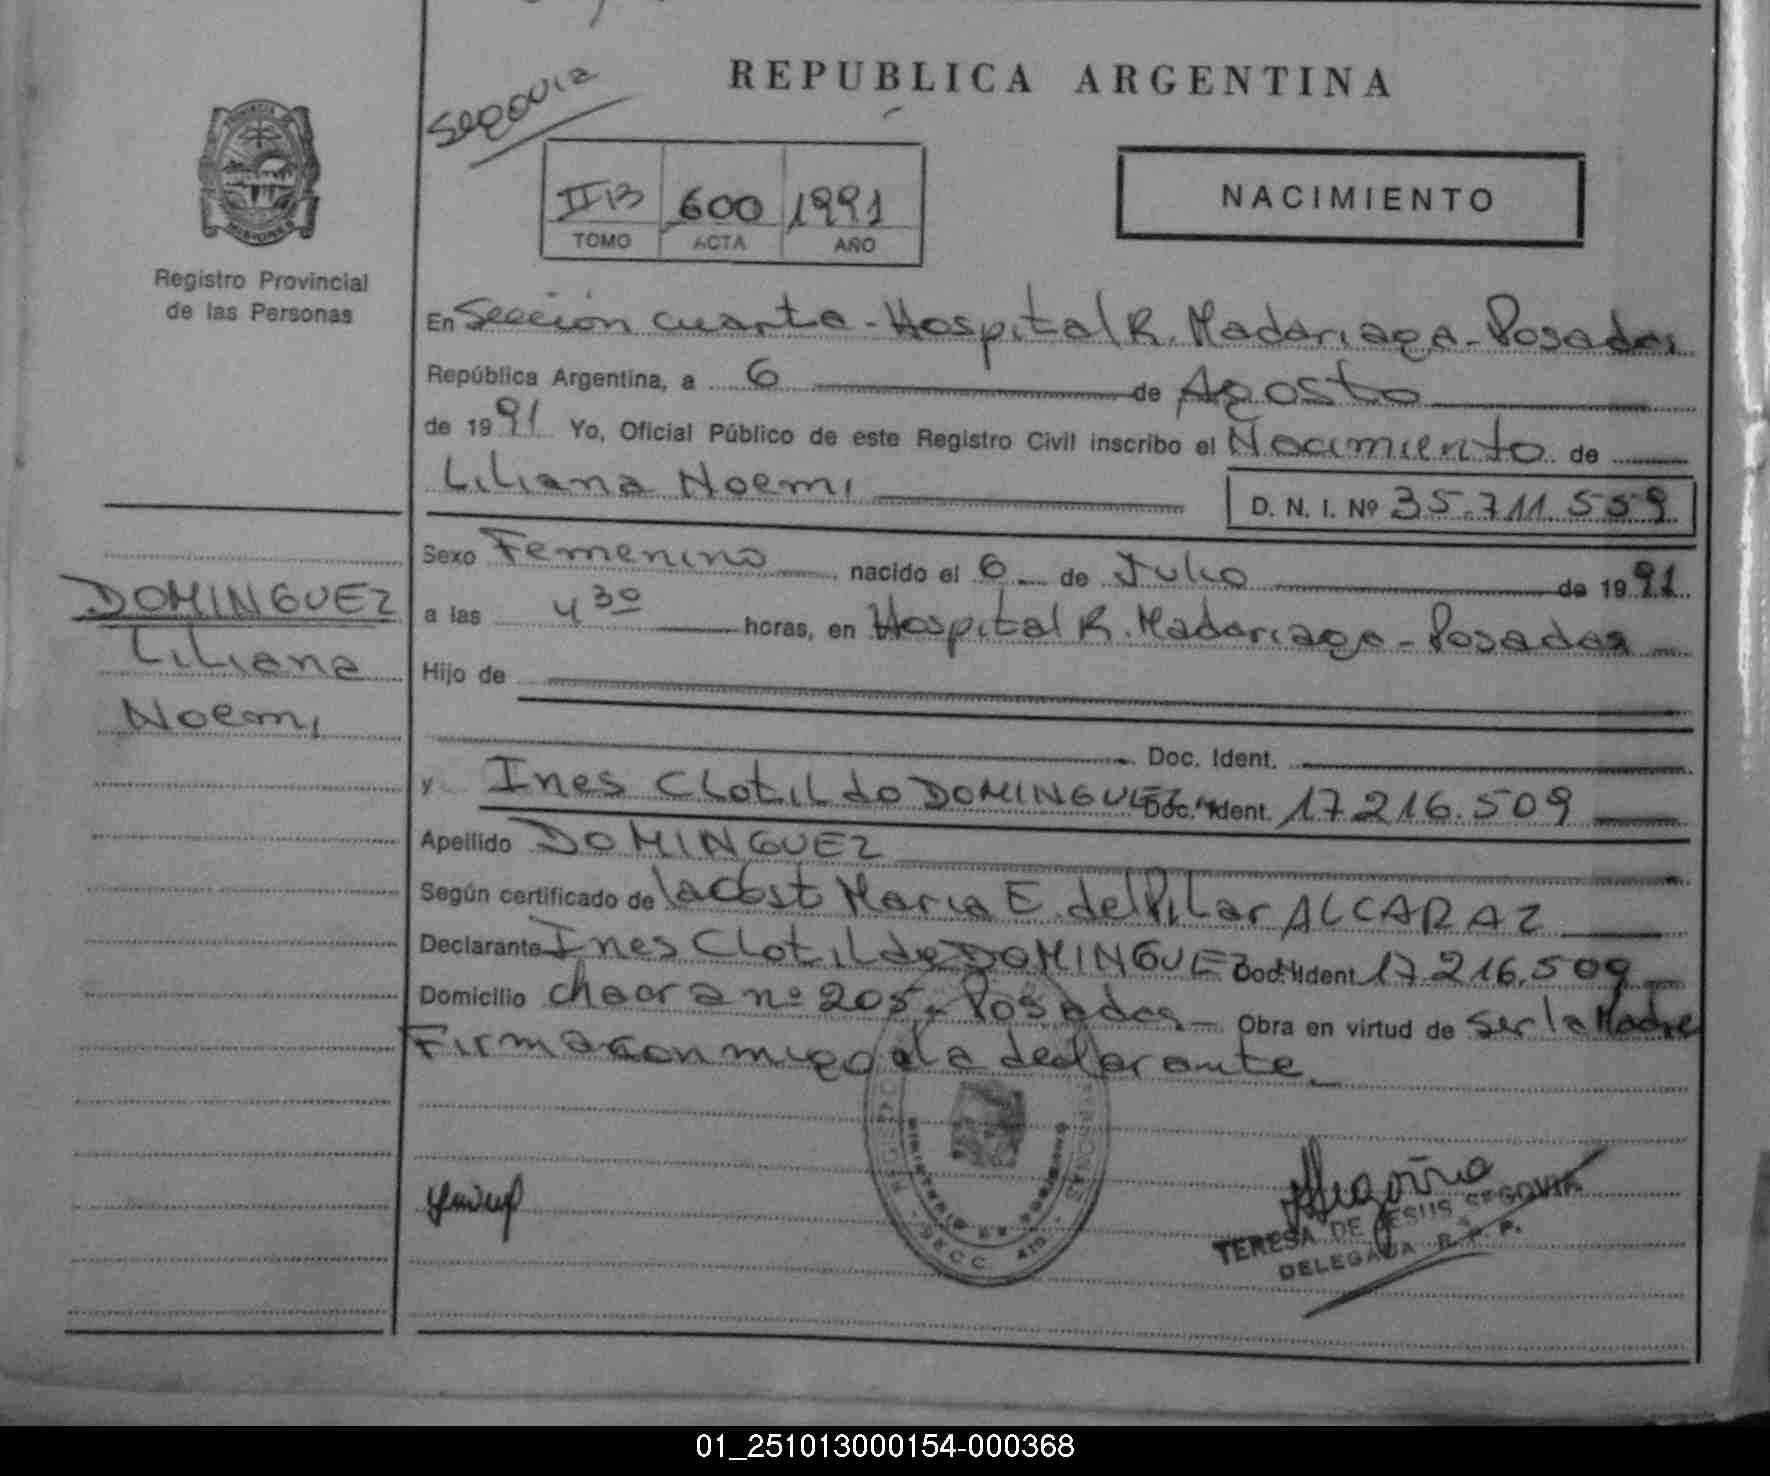 Segovia
REPUBLICA ARGENTINA
II B 600 1991
TOMO ACTA AÑO
NACIMIENTO
PROVINCIA
MISIONES
Registro Provincial
de las Personas
En Sección cuarta - Hospital R. Madariaga - Posadas
República Argentina, a 6 de Agosto
de 1991 Yo, Oficial Público de este Registro Civil inscribo el Nacimiento de
Liliana Noemi
D. N. I. Nº 35.711.559
Sexo Femenino nacido el 6 de Julio de 1991
a las 4 30 horas, en Hospital R. Madariaga - Posadas
Hijo de
Doc. Ident.
y Ines Clotilda DOMINGUEZ Doc. Ident. 17.216.509
Apellido DOMINGUEZ
Según certificado de la Obst Maria E. del Pilar ALCARAZ
Declarante Ines Clotilde DOMINGUEZ Doc. Ident 17.216.509
Domicilio chacra nº 205 - Posadas - Obra en virtud de ser la Madre
Firma conmigo la declarante
DOMINGUEZ
Liliana
Noemi
SECC. 4ta.
Segovia
TERESA DE JESUS SEGOVIA
DELEGADA R. P. P.
01_251013000154-000368